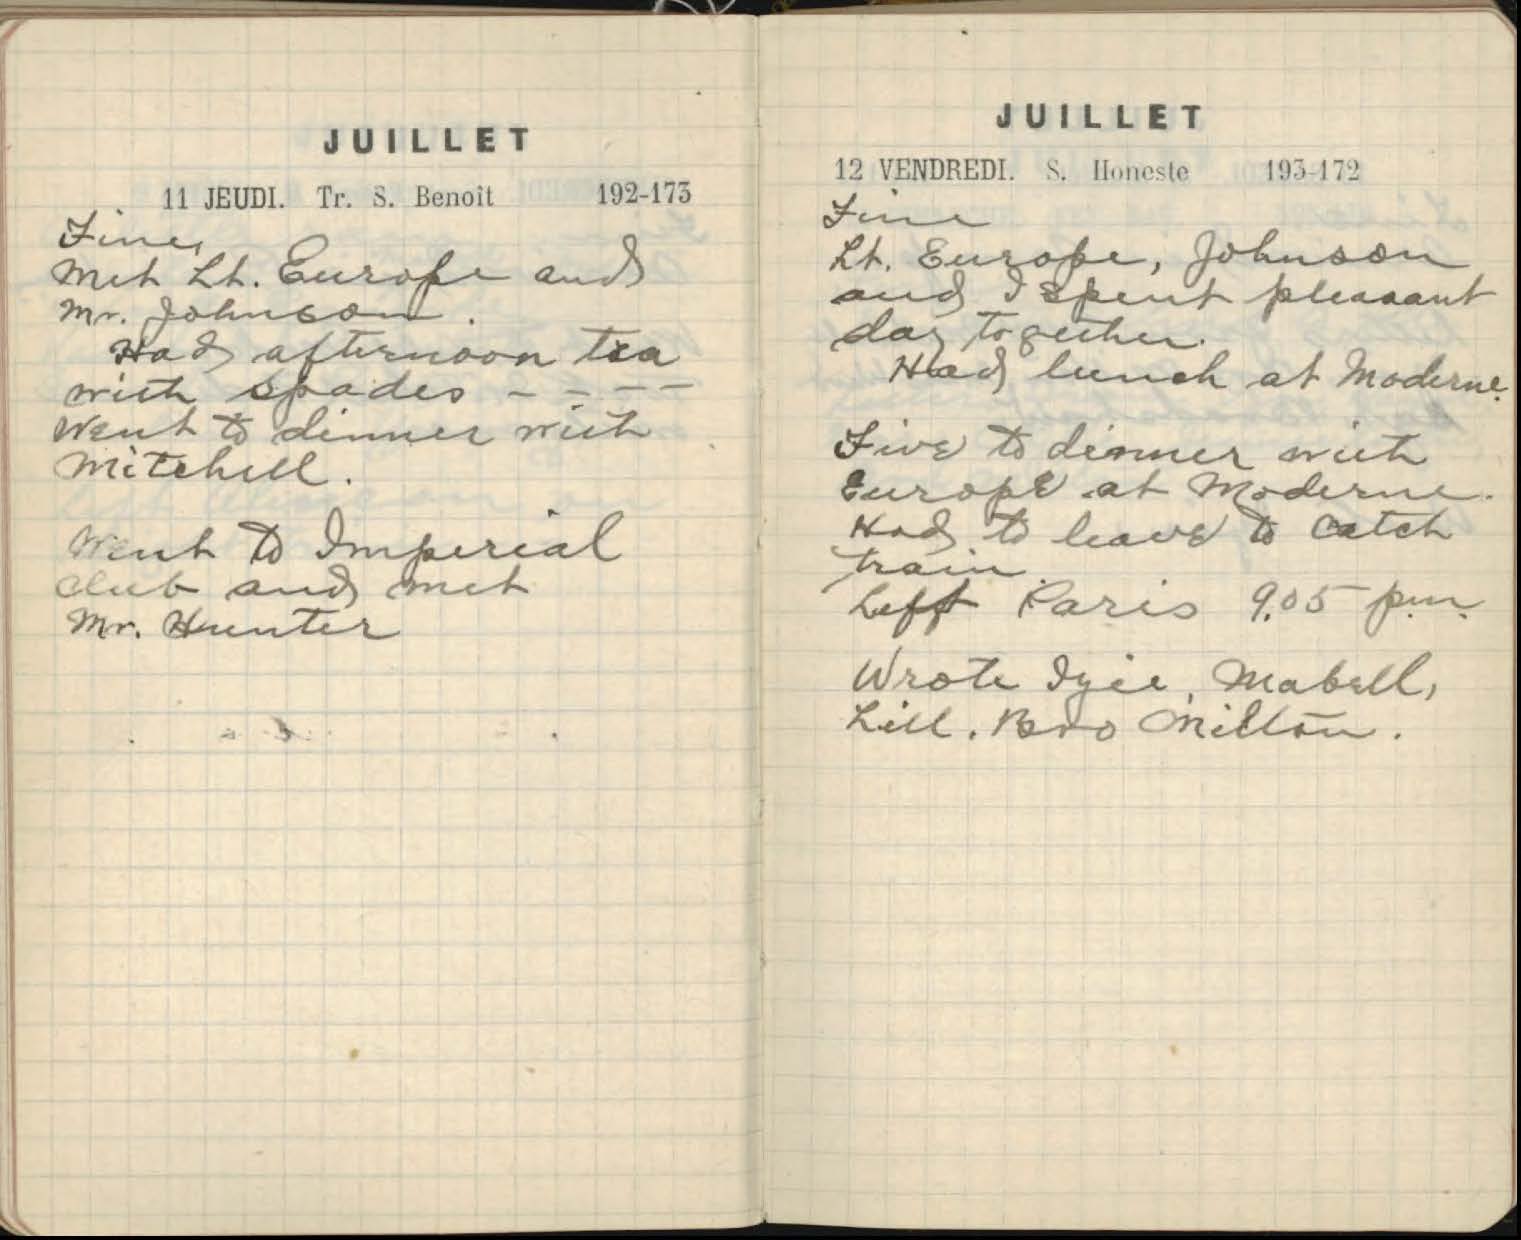 JUILLET
11 JEUDI. Tr. S. Benoît 192-173
Fine,
Met Lt. Europe and
Mr. Johnson.
Had afternoon tea
with spades - - - -
Went to dinner with
Mitchell.
Went to Imperial
club and met
Mr. Hunter
JUILLET
12 VENDREDI. S. Honeste 193-172
Fine
Lt. Europe, Johnson
and I spent pleasant
day together.
Had lunch at Moderne.
Five to dinner with
Europe at Moderne.
Had to leave to catch
train.
Left Paris 9.05 p.m.
Wrote Mabell,
Lill. Bro Milton.